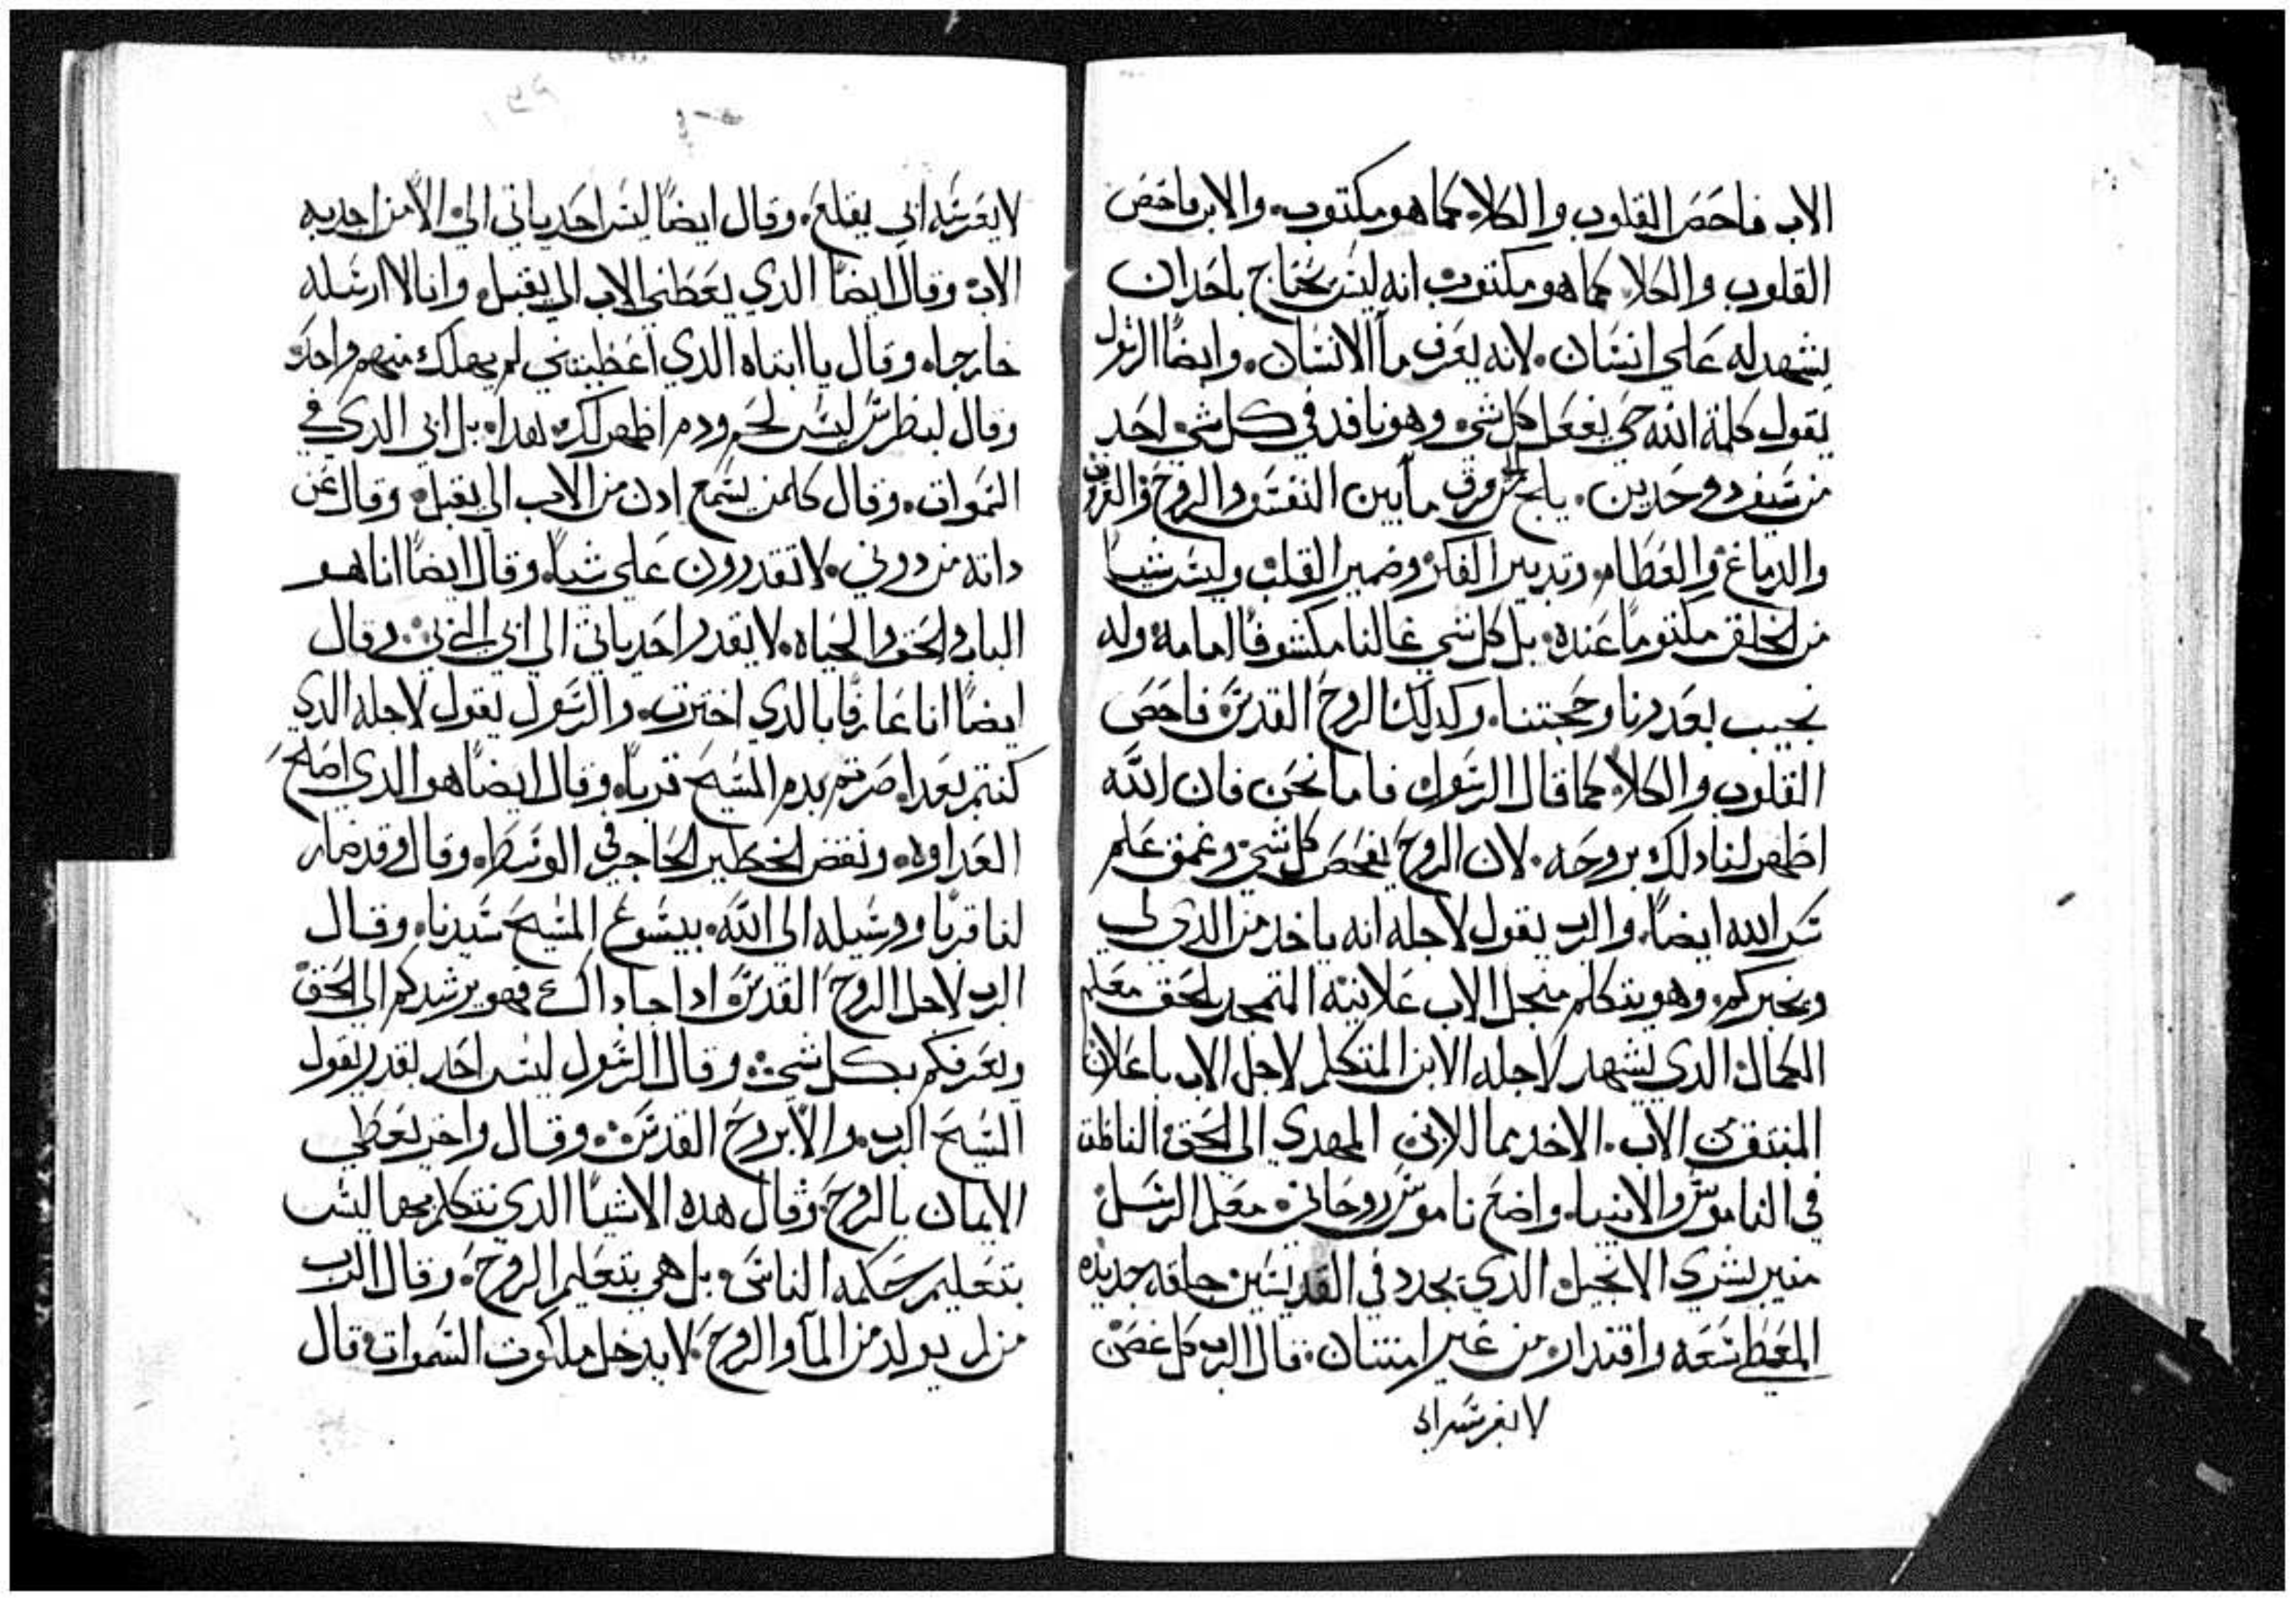 الاب فاحص القلوب والكلا، كما هو مكتوب. والابن فاحص
القلوب والكلا، كما هو مكتوب انه ليس يحتاج باحد ان
يشهد له على انسان. لانه يعرف ما الانسان. وايضًا الرسول
يقول كلمة الله حي يفعل كل شي وهو نافد في كل شي احد
من سيف دو حدين. يلج مفرق ما بين النفس والروح والعروق
والدماغ والعظام. وتدبير الفكر وضمير القلب وليس شيا
من الخلق مكتوما عنده. بل كل شي غالنا مكشوفًا امامه وله
نجيب بعدرنا وحجتنا. وكدلك الروح القدس فاحص
القلوب والكلا، كما قال الرسول فاما نحن فان الله
اظهر لنا دلك بروحه. لان الروح يفحص كل شي وعمق علم
سر الله ايضًا. والرب يقول لاجله انه ياخد من الدي لي
ويخبركم. وهو يتكلم منجل الاب علانية المتمجد بالحق معلم
الكمال الدي يشهد لاجله الابن المتكلم لاجل الاب باعلان
المنبثق من الاب. الاخد مما للابن المهدي الى الحق الناطق
في الناموس والانبيا. واضح ناموس روحاني معلم الرسل
منير بشري الانجيل الدي يجدد في القديسين خلقه جديده
المعطي سعه واقتدار من غير امتنان. قال الرب كل غصن
لا يغرسه ابي
لا يغرسه ابي يقلع. وقال ايضًا ليس احد ياتي الي الا من اجدبه
الاب وقال ايضًا الدي يعطني الاب الي يقبل. وانا لا ارسله
خارجا. وقال يا ابتاه الدي اعطيتني لم يهلك منهم واحد
وقال لبطرس ليس لحم ودم اظهر لك هدا. بل ابي الدي في
السموات. وقال كلمن يسمع ادن من الاب الي يقبل. وقال عن
داته من دوني. لا تقدرون على شيا. وقال ايضًا انا هو
الباب والحق والحياه. لا يقدر احد ياتي الى ابي الا بي. وقال
ايضًا انا عارفًا بالدي اخترت. والرسول يقول لاجله الدي
كنتم بعدا. صرتم بدم المسيح قربا. وقال ايضًا هو الدي اصلح
العداوه. ونقض الحطير الحاجر في الوسط. وقال وقد صار
لنا قربًا ووسيله الى الله. بيسوع المسيح سيدنا. وقال
الرب لاجل الروح القدس ادا جا داك فهو يرشدكم الى الحق
ويعرفكم بكل شي. وقال الرسول ليس احد يقدر يقول
المسيح الرب. والا بروح القدس. وقال واخر يعطي
الايمان بالروح. وقال هده الاشيا الدي نتكلم بها ليس
بتعليم حكمه الناس. بل هي بتعليم الروح. وقال الرب
من لم يولد من الما والروح. لا يدخل ملكوت السموات قال